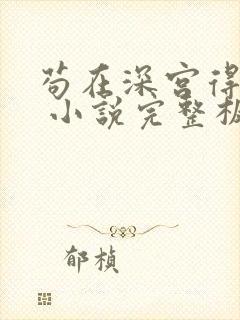 苟在深宫得
小說完整板
郁楨